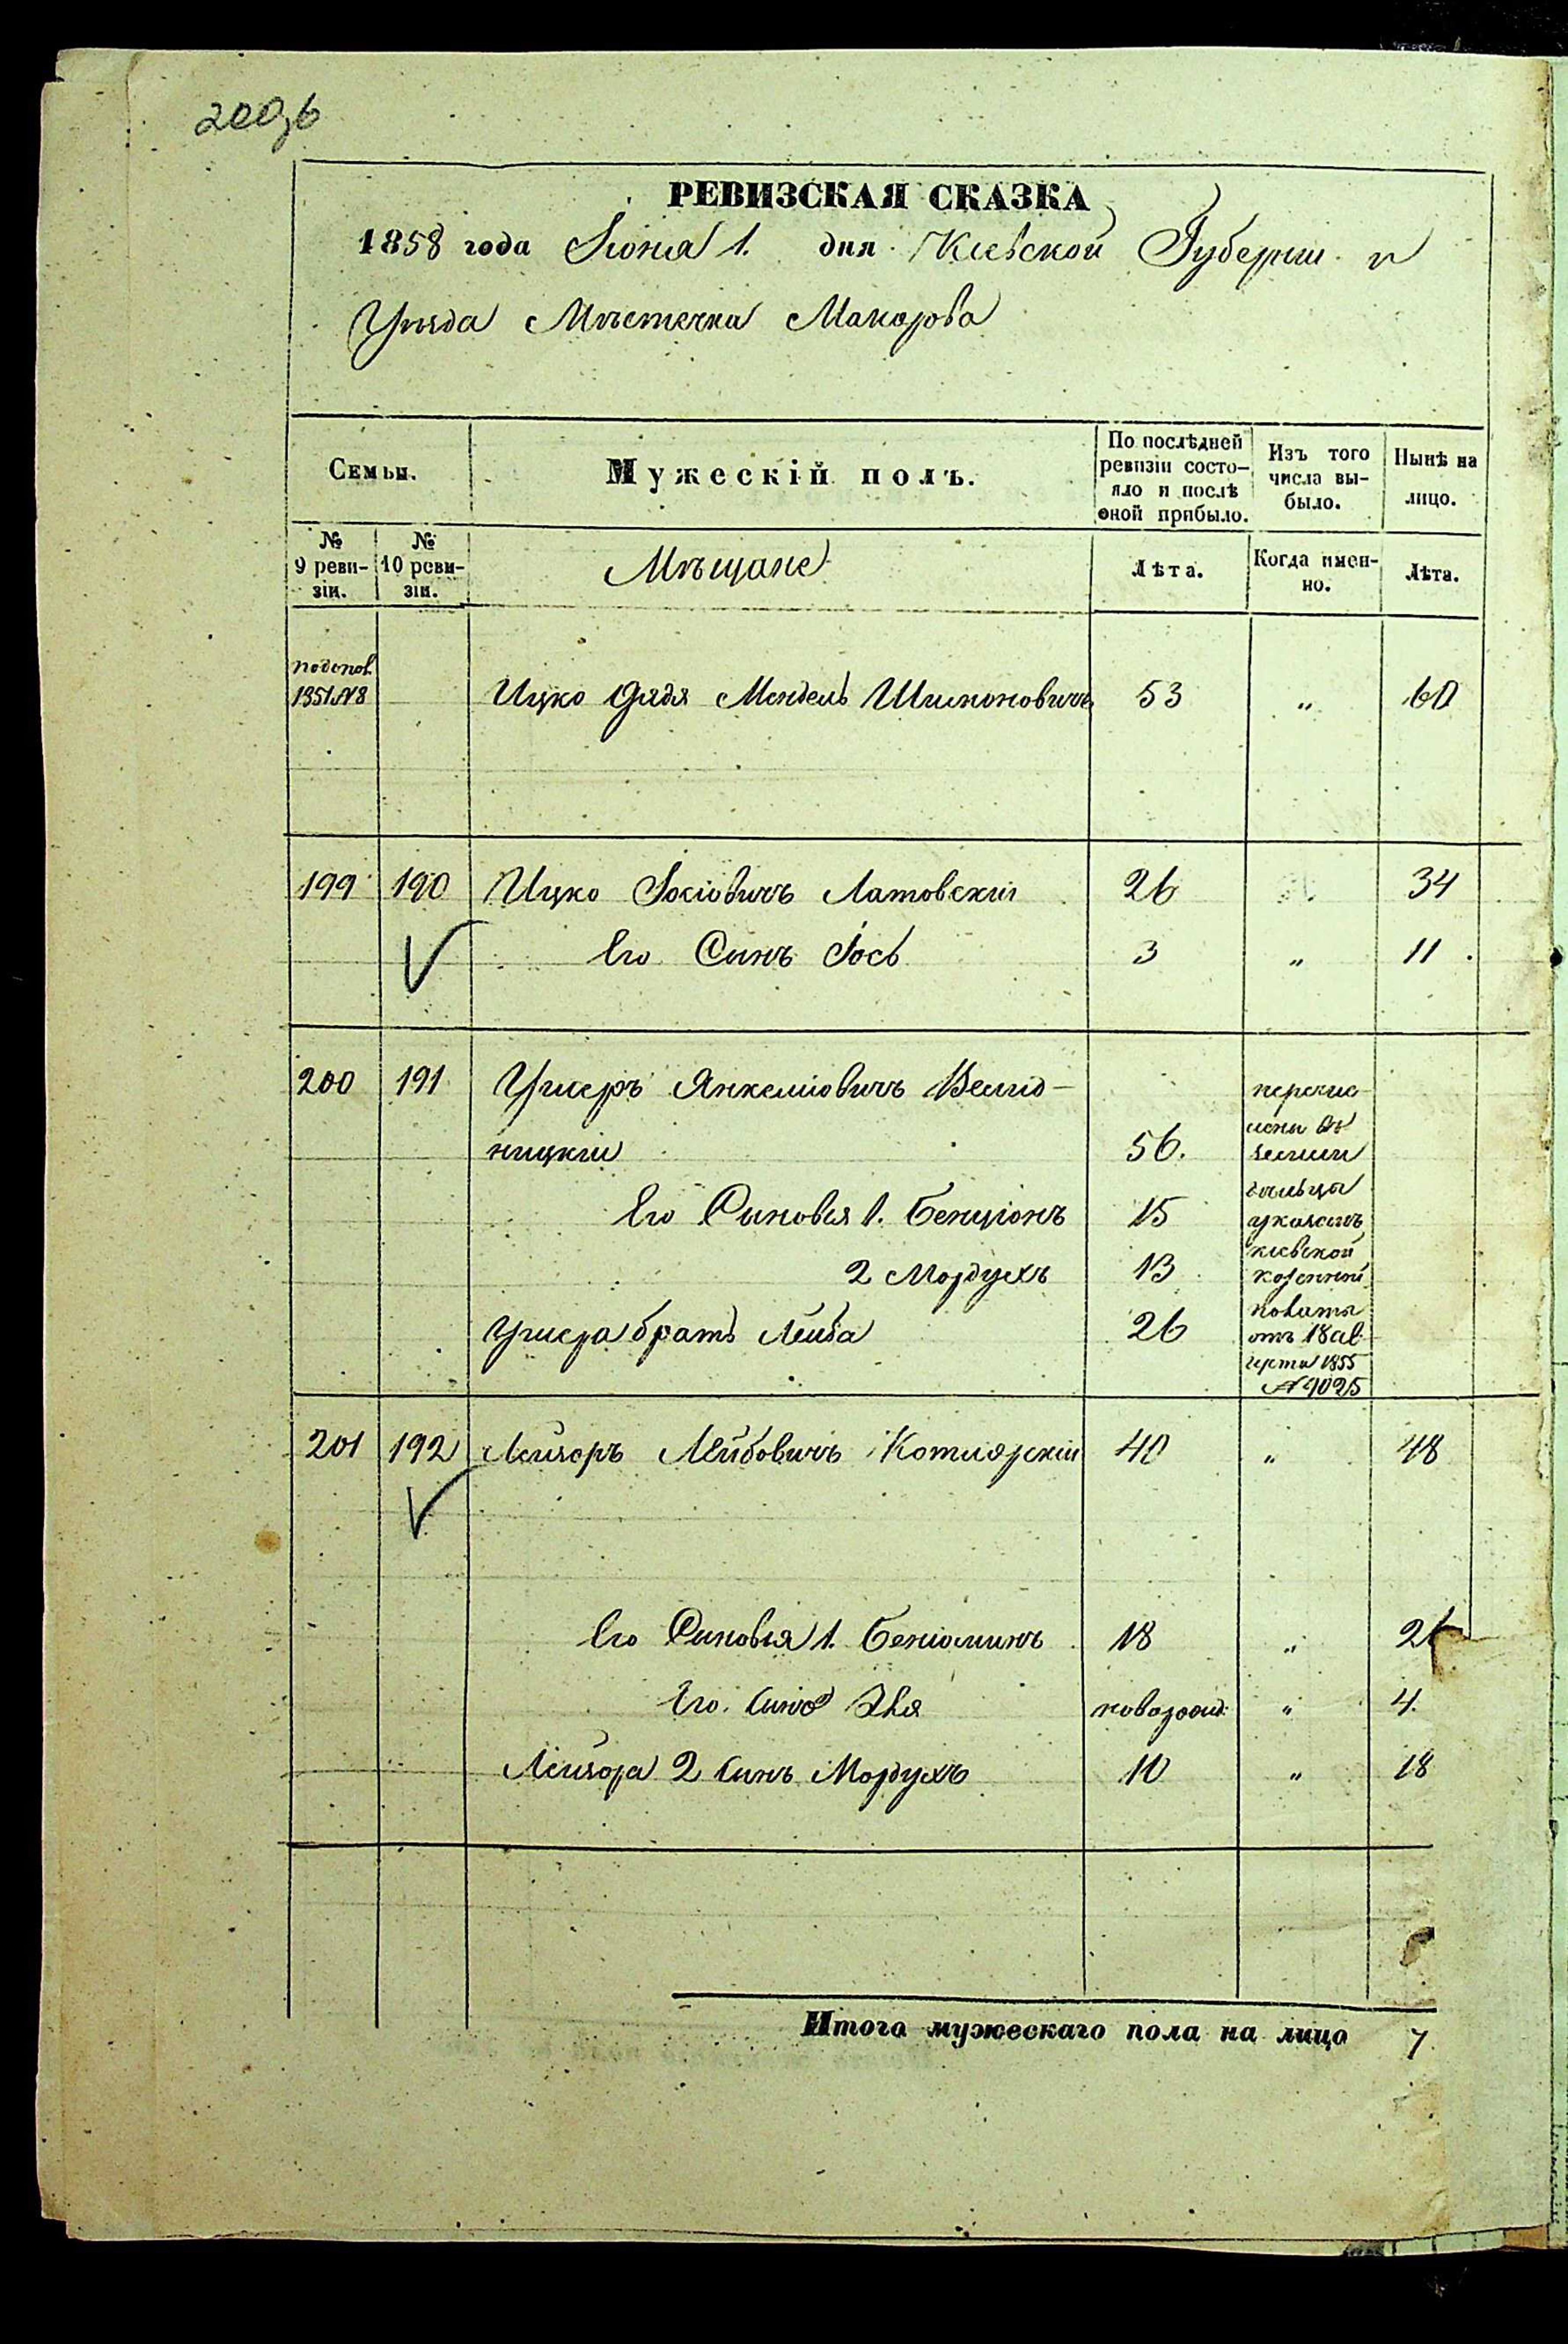 200
РЕВИЗСКАЯ СКАЗКА
1858 года Іюня 1. дня Кіевской Губерніи и
Уѣзда Мѣстечка Макарова
Семьи.
Мужескій полъ.
По послѣдней ревизіи состо-
яло и послѣ
оной прибыло.
Изъ того
числа вы-
было.
Нынѣ на
лицо.
№
9 реви-
зіи.
№
10 реви-
зіи.
Мѣщане
Лѣта.
Когда имен-
но.
Лѣта.
1851 № 8
Ицко дядя Мендель Шимоновичъ 53 " 60
199 190 Ицко Іосіовичъ Латовскій 26 34
Его Синъ Іось 3 " 11
200 191 Ушеръ Янкеліовичъ Велид-
ницкій 56.
Его Синовья 1. Бенціонъ 15
2 Мордухъ 13
Ушера братъ Лейба 26
перечис-
лены въ
указомъ
кіевской
казенной
полаты
отъ 18 ав-
густа 1855
№ 9025
201 192 Лейзоръ Лейбовичъ Котлярскій 40 " 48
Его Синовья 1. Беніоминъ 18 " 26
Его Синъ Эля новорожд. " 4.
Лейзора 2 Синъ Мордухъ 10 " 18
Итого мужескаго пола на лицо 7